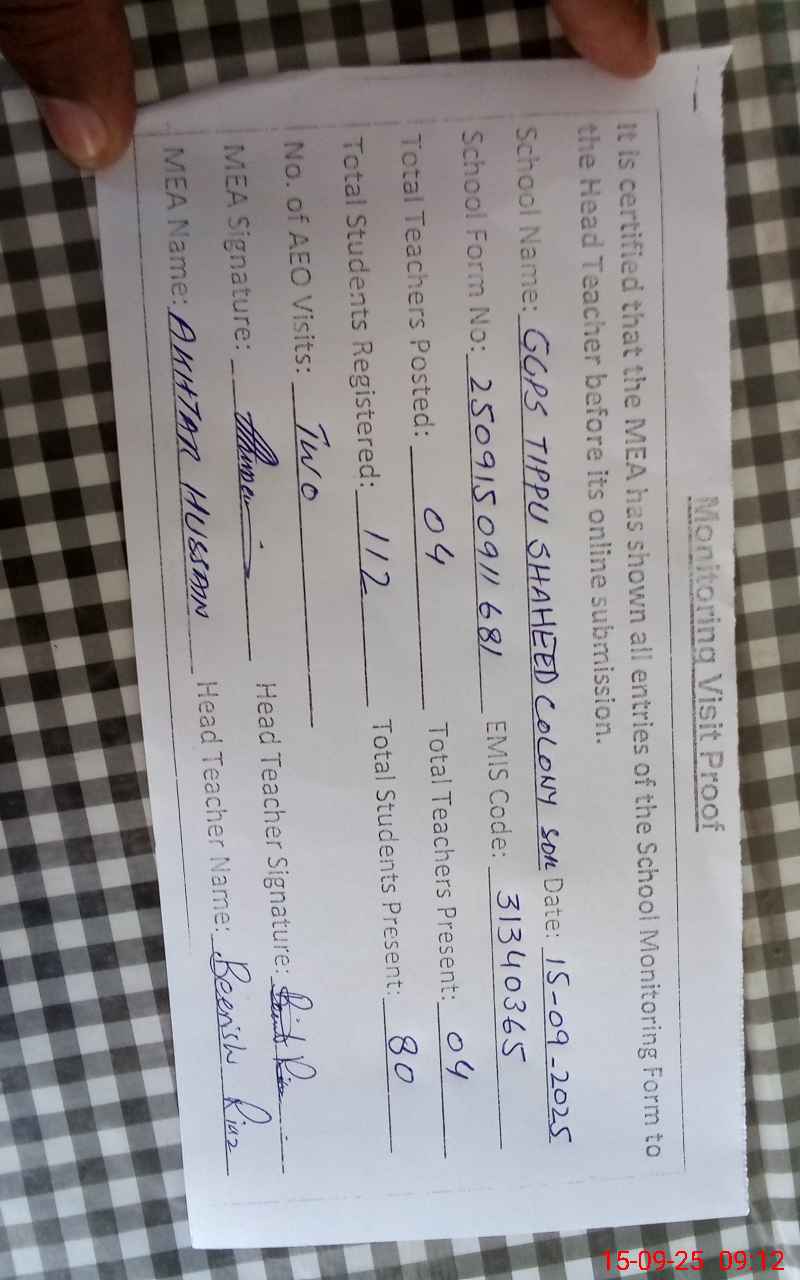 Monitoring Visit Proof
It is certified that the MEA has shown all entries of the School Monitoring Form to
the Head Teacher before its online submission.
School Name: GGPS TIPPU SHAHEED COLONY SDK Date: 15-09-2025
School Form No: 2509150911681 EMIS Code: 31340365
Total Teachers Posted: 04 Total Teachers Present: 04
Total Students Registered: 112 Total Students Present: 80
No. of AEO Visits: TWO
MEA Signature: Head Teacher Signature:
MEA Name: AKHTAR HUSSAIN Head Teacher Name: Beenish Riaz
15-09-25 09:12